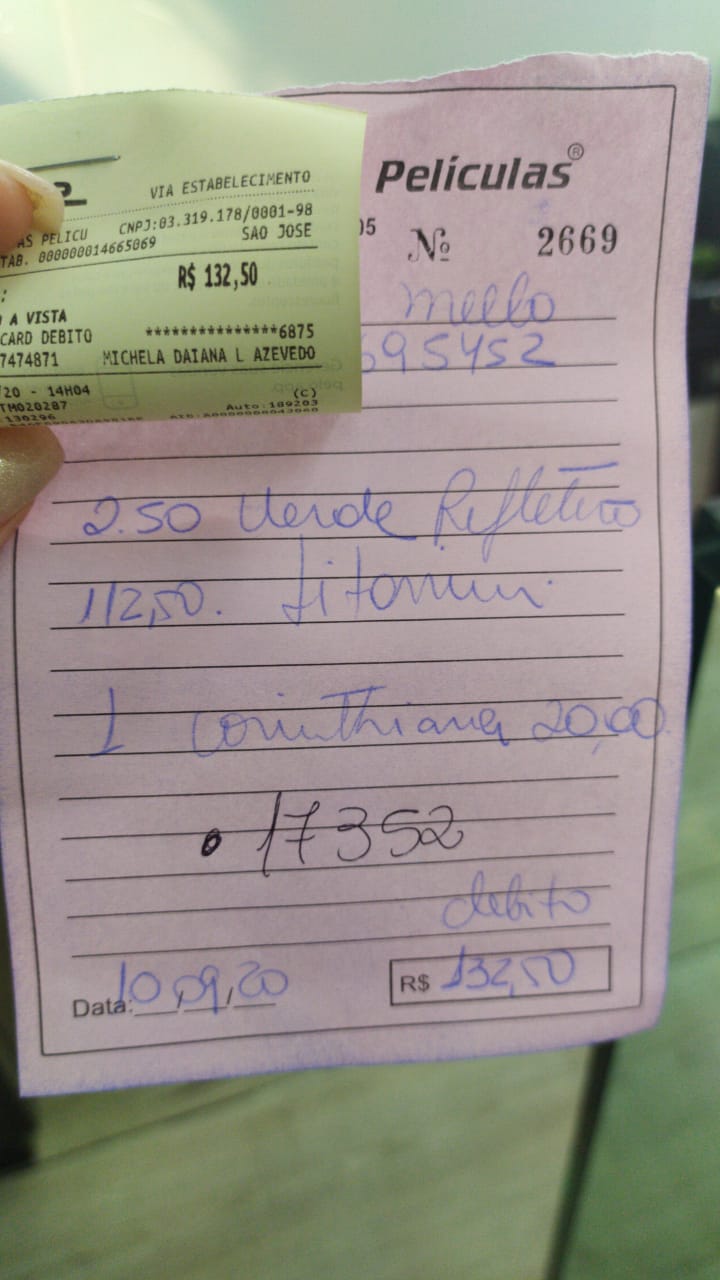 VIA ESTABELECIMENTO
AS PELICU CNPJ:03.319.178/0001-98
TAB. 000000014665069 SAO JOSE
R$ 132,50
A VISTA
CARD DEBITO ***************6875
7474871 MICHELA DAIANA L AZEVEDO
/20 - 14H04 (C)
TM020287 Auto:189203
130296
Películas®
05 Nº 2669
Mello
695452
2.50 Verde Refletivo
112,50.
1 Corinthiana 20,00
17352
debito
Data: 10/09/20 R$ 132,50